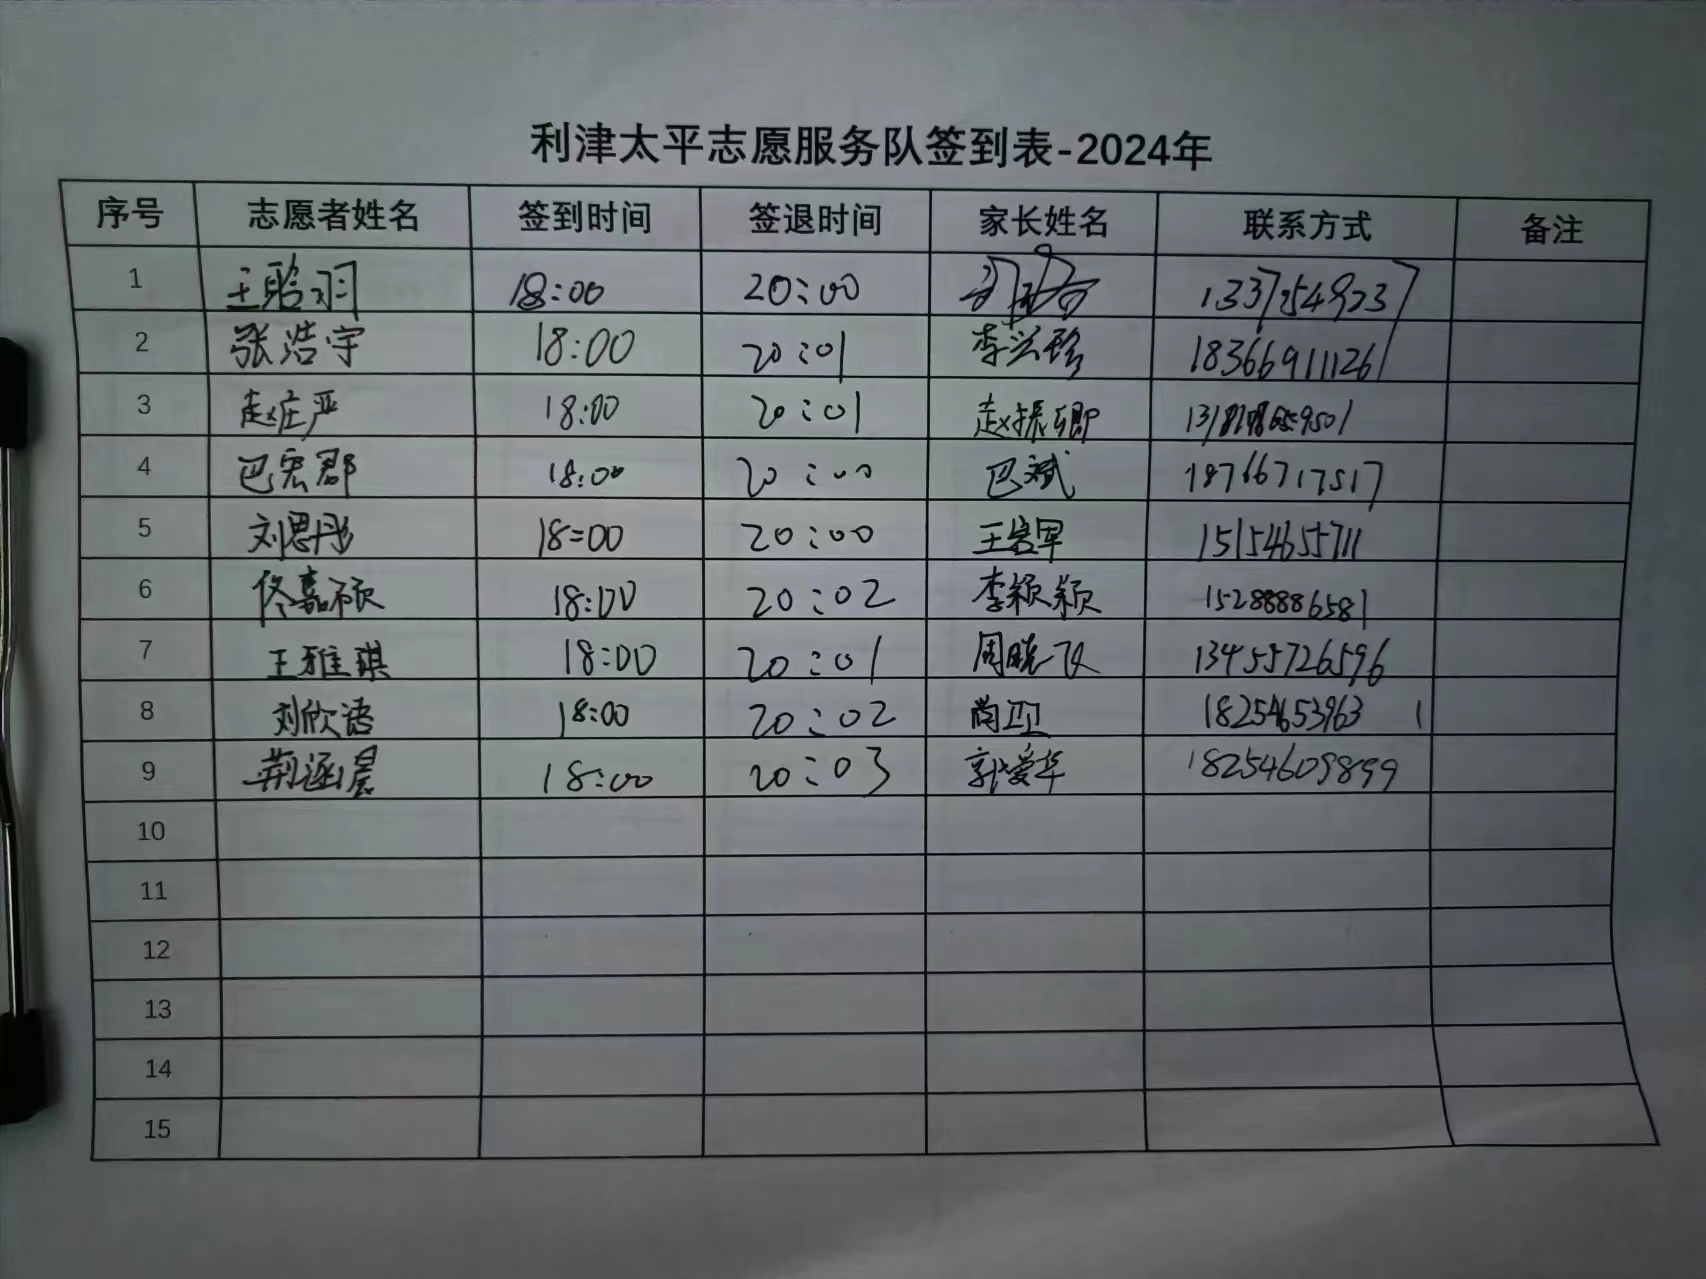 利津太平志愿服务队签到表-2024年
序号 志愿者姓名 签到时间 签退时间 家长姓名 联系方式 备注
1 王晗羽 18:00 20:00
2 张浩宇 18:00 20:01 李兴珍 18366911126
3 赵庄严 18:00 20:01 赵振卿
4 巴宏郡 18:00 20:00 巴斌 18766717517
5 刘思彤 18:00 20:00 王宏军 15154655711
6 佟嘉硕 18:00 20:02 李颖颖 15288886581
7 王雅琪 18:00 20:01 周晓飞 13455726596
8 刘欣语 18:00 20:02 尚卫卫 18254653963
9 荆涵晨 18:00 20:03 郭爱华 18254609899
10
11
12
13
14
15